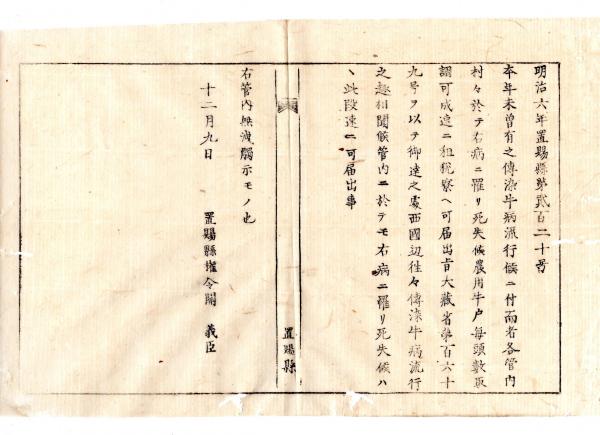 明治六年置賜縣第貳百二十号
本年未曽有之傳染牛病流行候ニ付而者各管内
村々於テ右病ニ罹リ死失候農用牛戸毎頭数取
調可成速ニ租税寮ヘ可届出旨大藏省第百六十
九号ヲ以テ御達之處西國辺往々傳染牛病流行
之趣相聞候管内ニ於テモ右病ニ罹リ死失候ハ
ヽ此段速ニ可届出事
右管内無洩觸示モノ也
十二月九日
置賜縣権令関 義臣
置賜縣